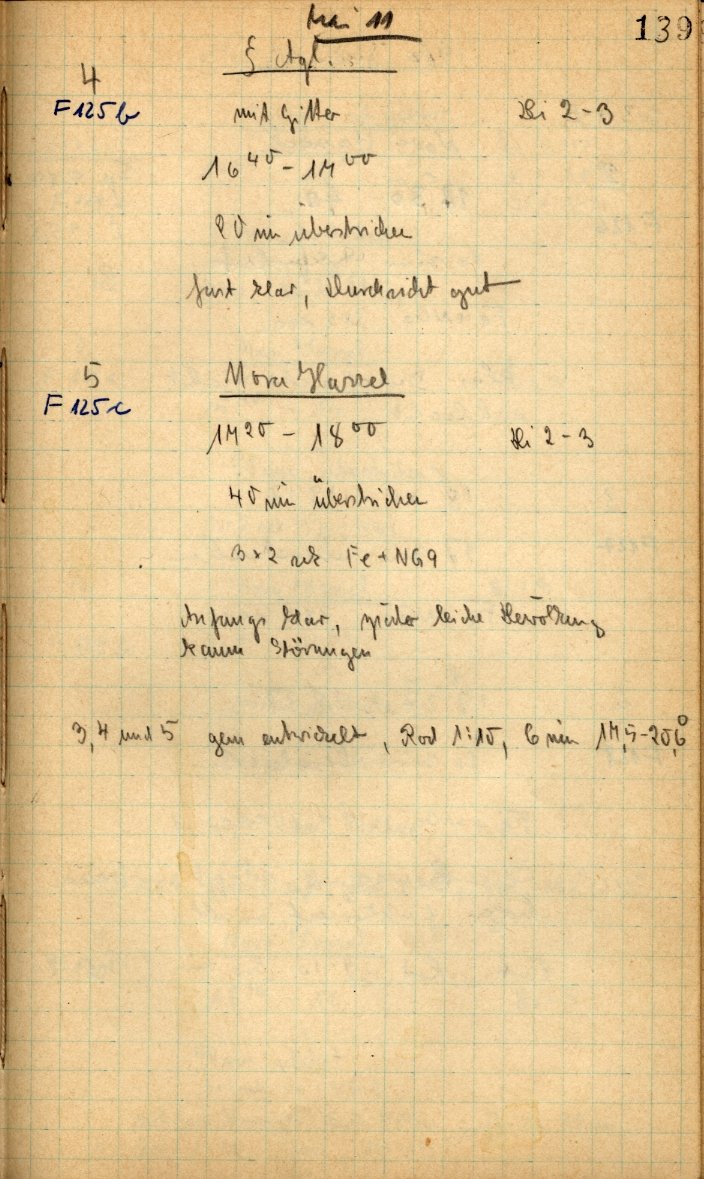 139
Mai 11
ξ Aql.
4
F 125 b
mit Gitter
Di 2-3
16 40 - 17 00
20 min überstrichen
fast klar, Durchsicht gut
5
F 125 c
Nova Hassel
17 20 - 18 00
Di 2-3
40 min überstrichen
3 × 2 sek Fe + NG9
Anfangs klar, später leichte Bewölkung
kaum Störungen
3, 4 und 5 gem entwickelt, Rod 1:10, 6 min 17,5-20,6°